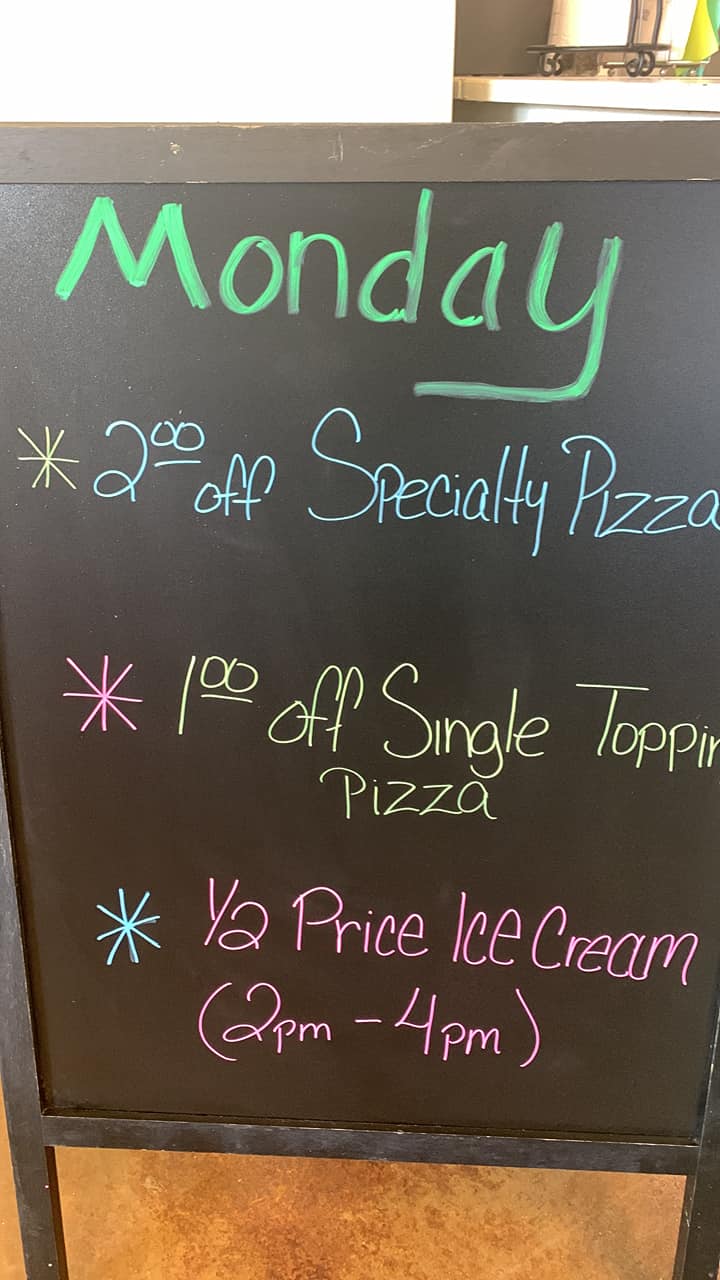 Monday
* 2.00 off Specialty Pizza
* 1.00 off Single Toppin
Pizza
* 1/2 Price Ice Cream
(2pm - 4pm)